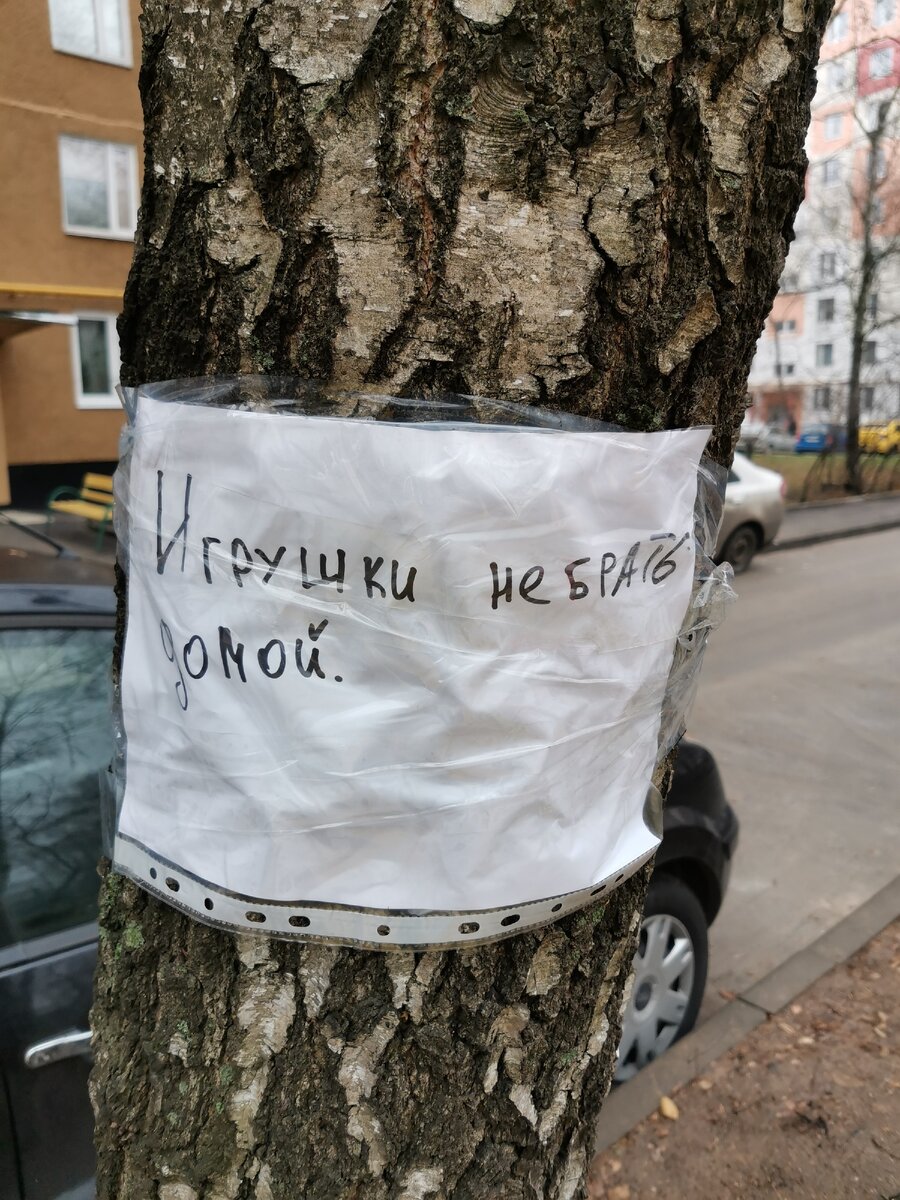 Игрушки не брать
домой.